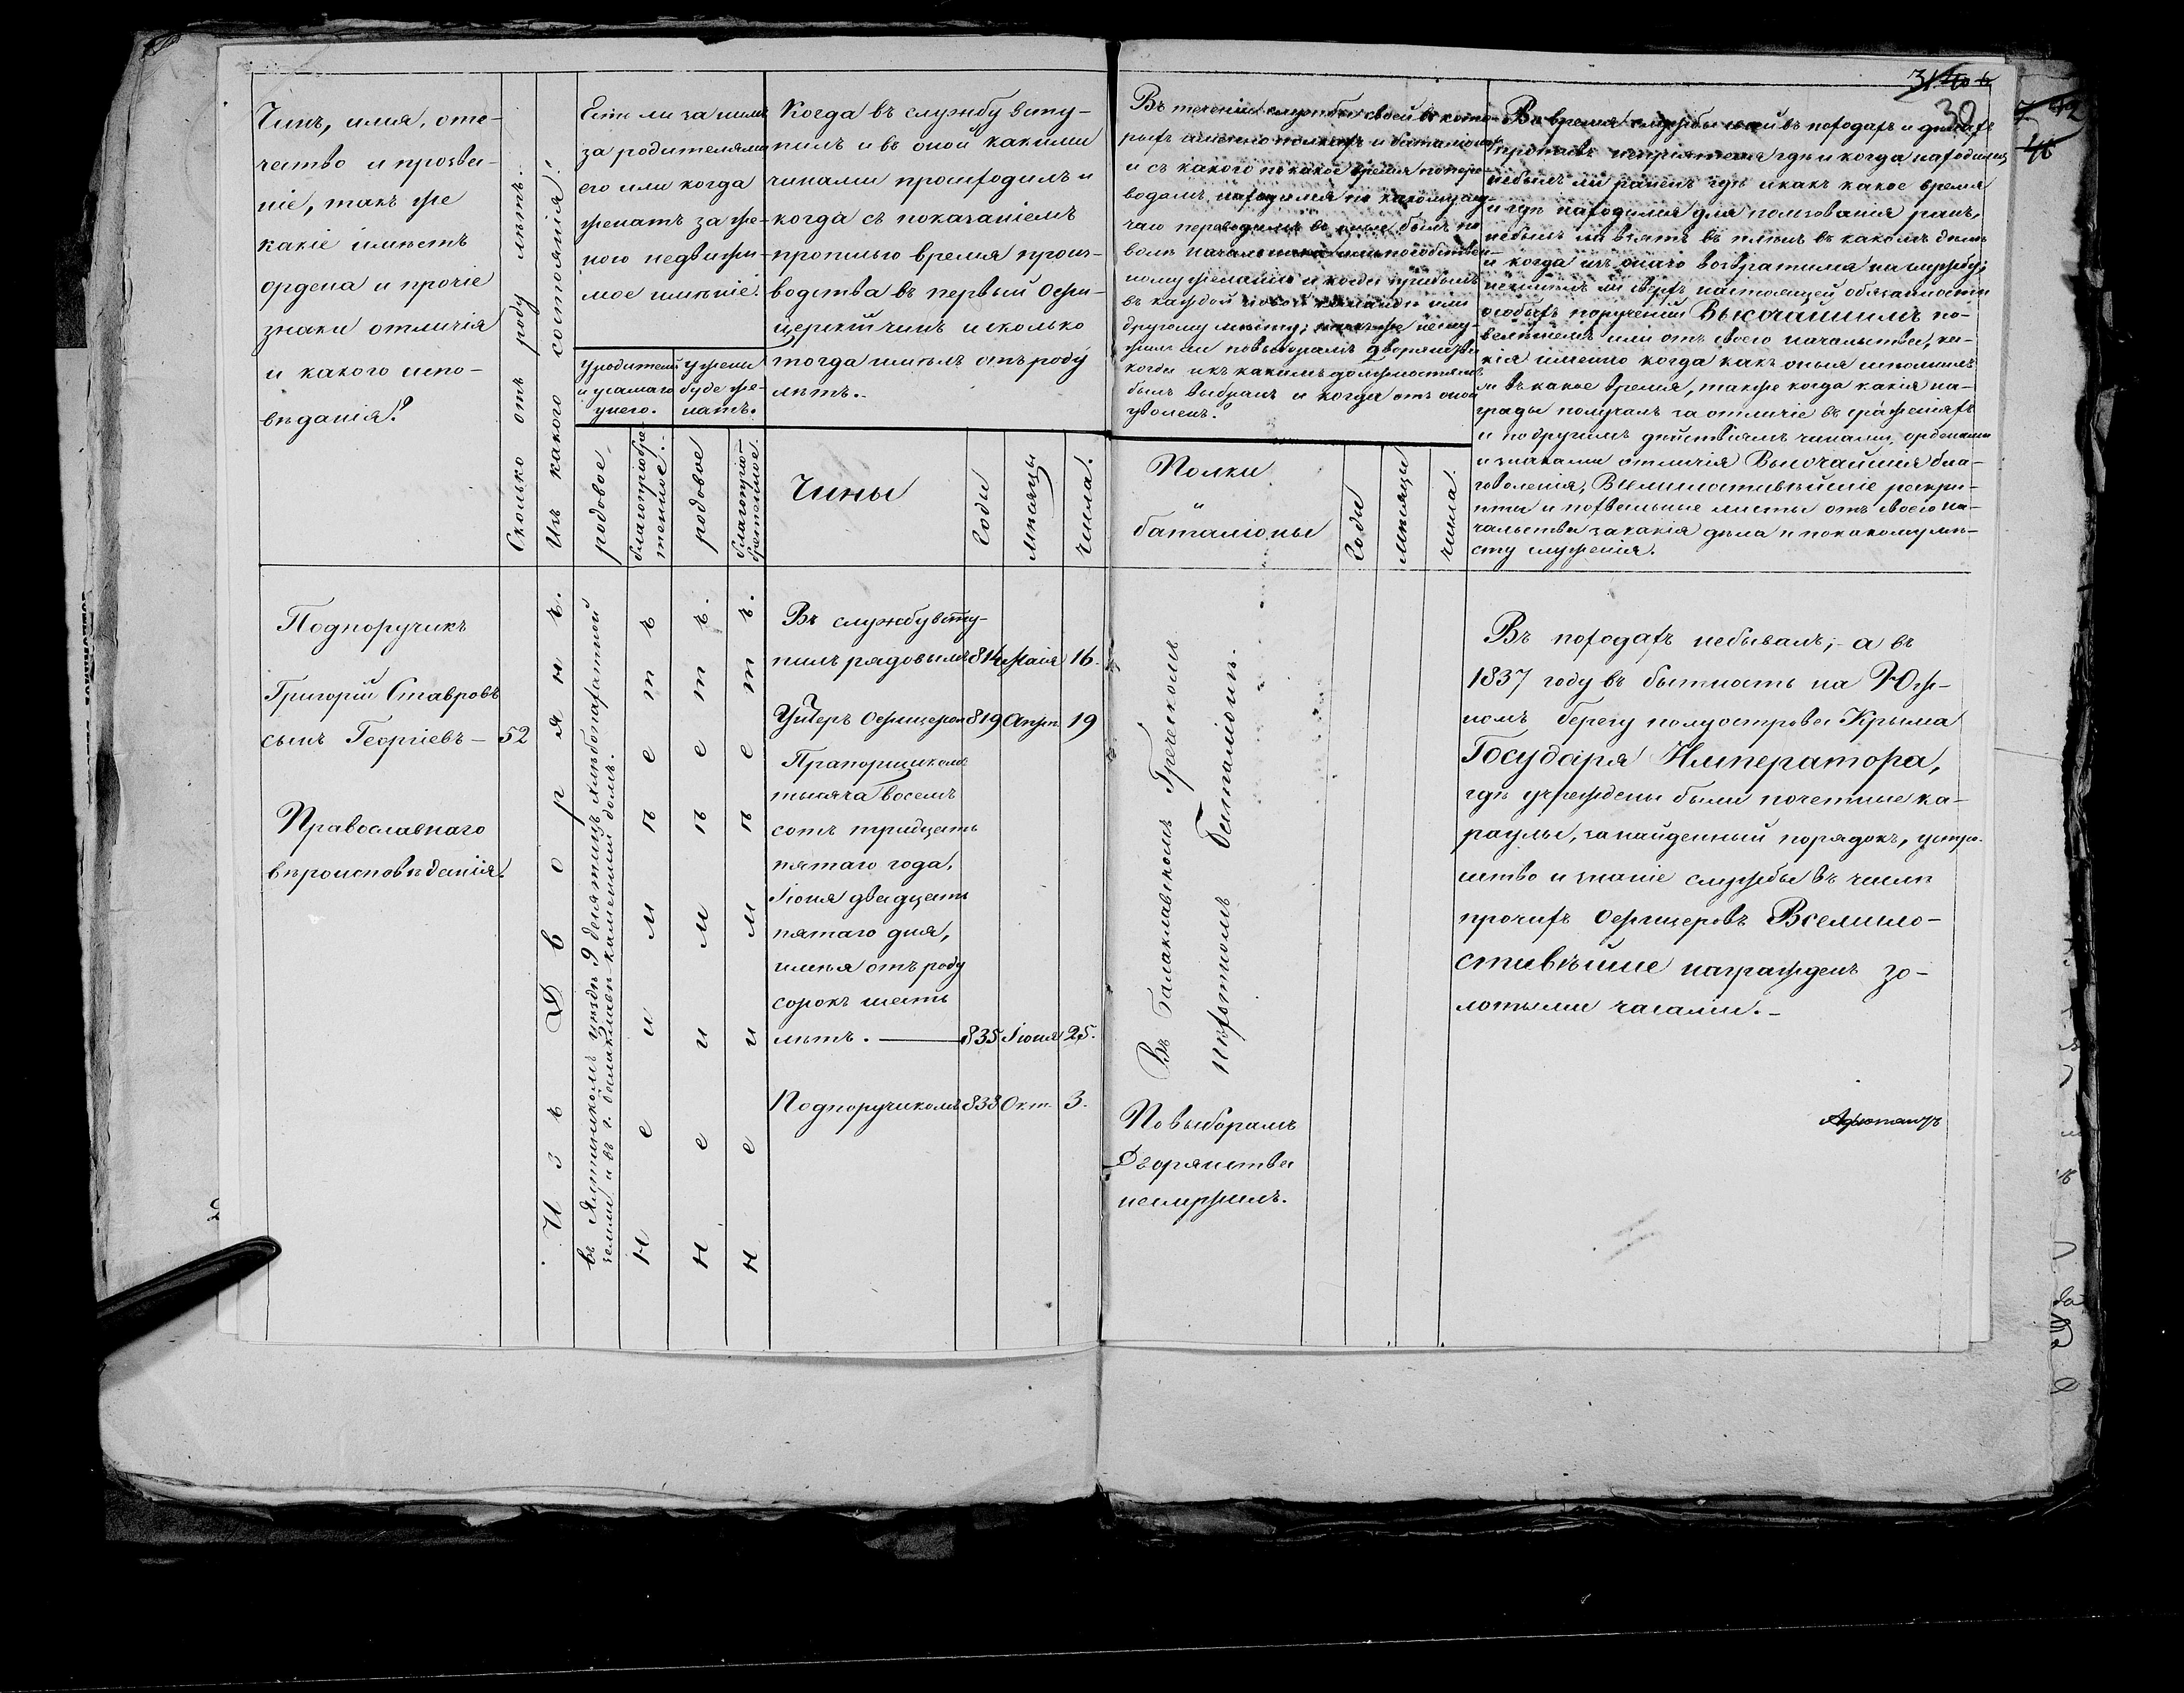 Чинъ, имя, оте-
чество и прозва-
ніе, такъ же
какіе имѣетъ
ордена и прочіе
знаки отличія
и какого испо-
вѣданія?
Сколько отъ роду лѣтъ.
Изъ какого состоянія?
Есть ли за нимъ
за родителями
его или когда
женатъ за же-
ною недвижи-
мое имѣніе.
у родителей
и у самаго
у него.
у жены
буде же-
натъ.
родовое.
благопріобрѣ-
тенное.
родовое
благопріоб-
рѣтенное.
Когда въ службу всту-
пилъ и въ оной какими
чинами происходилъ и
когда съ показаніемъ
прописью время произ-
водства въ первый Офи-
церскій чинъ и сколько
тогда имѣлъ отъ роду
лѣтъ.
Чины
Годы
мѣсяцы
числа.
Въ теченіи службы своей въ кото-
рыхъ именно полкахъ и баталіонахъ
и съ какого по какое время по пере-
водамъ находился по какому слу-
чаю переводимъ въ оные былъ по
волѣ начальника или по собствен-
ному желанію и когда прибылъ
въ каждой новой команды или
другому мѣсту; также не слу-
жилъ ли по выборамъ дворянства
когда и къ какимъ должностямъ
былъ выбранъ и когда отъ оной
уволенъ?
Полки
и
баталіоны
Годы
мѣсяцы
числа.
31 40 6
30
7 42
46
Во время службы своей въ походахъ и дѣлахъ
противъ непріятеля гдѣ и когда находился
не былъ ли раненъ гдѣ и какъ какое время
и гдѣ находился для пользованія ранъ,
не былъ ли взятъ въ плѣнъ въ какомъ дѣлѣ
и когда изъ онаго возвратился на службу;
не имѣлъ ли сверхъ настоящей обязанности
особыхъ порученій Высочайшимъ по-
велѣніемъ или отъ своего начальства, ка-
кія именно когда какъ оныя исполнилъ
и въ какое время, также когда какія на-
грады получалъ за отличіе въ сраженіяхъ
и по другимъ дѣйствіямъ чинами, орденами
и знаками отличія Высочайшія бла-
говоленія, Всемилостивѣйшіе рескри-
пты и похвальные листы отъ своего на-
чальства за какія дѣла и по какому мѣ-
сту служенія.
Подпоручикъ
Григорій Ставровъ
сынъ Георгіевъ — 52
Православнаго
вѣроисповѣданія.
Изъ Дворянъ.
въ Ялтинскомъ уѣздѣ 9 десятинъ хлѣбопахатной
земли и въ г. балаклавѣ каменный домъ.
не имѣетъ
не имѣетъ.
не имѣетъ.
Въ службу всту-
пилъ рядовымъ 814 Маія 16.
Унтеръ Офицеромъ 819 Апрѣ. 19
Прапорщикомъ
тысяча восемъ
сотъ тридцать
пятаго года,
Іюня двадцать
пятаго дня,
имѣя отъ роду
сорокъ шесть
лѣтъ. — 835 Іюня 25.
Подпоручикомъ 838 Окт. 3.
Въ Балаклавскомъ Греческомъ
Пѣхотномъ Баталіонѣ.
По выборамъ
Дворянства
не служилъ.
Въ походахъ не бывалъ; а въ
1837 году въ бытность на Юж-
номъ берегу полуострова Крыма
Государя Императора,
гдѣ учреждены были почетные ка-
раулы, за найденный порядокъ, устро-
йство и знаніе службы въ числѣ
прочихъ Офицеровъ Всемило-
стивѣйше награжденъ зо-
лотыми часами.
Адъютантъ